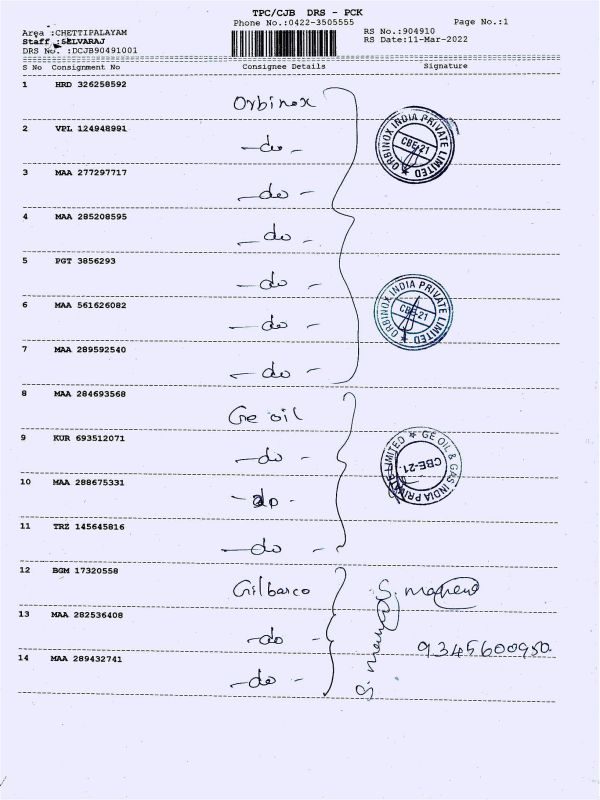 TPC/CJB DRS - PCK
Phone No.:0422-3505555
Page No.:1
Area :CHETTIPALAYAM
Staff :SELVARAJ
DRS No. :DCJB90491001
RS No.:904910
RS Date:11-Mar-2022
S No Consignment No Consignee Details Signature
1 HRD 326258592 Orbinox
2 VPL 124948991 -do-
3 MAA 277297717 -do-
4 MAA 285208595 -do-
5 PGT 3856293 -do-
6 MAA 561626082 -do-
7 MAA 289592540 -do-
ORBINOX INDIA PRIVATE LIMITED
CBE-21
ORBINOX INDIA PRIVATE LIMITED
CBE-21
8 MAA 284693568 Ge oil
9 KUR 693512071 -do-
10 MAA 288675331 -do-
11 TRZ 145645816 -do-
GE OIL & GAS INDIA PRIVATE LIMITED
CBE-21.
12 BGM 17320558 Gilbarco
13 MAA 282536408 -do-
9345600950
14 MAA 289432741 -do-